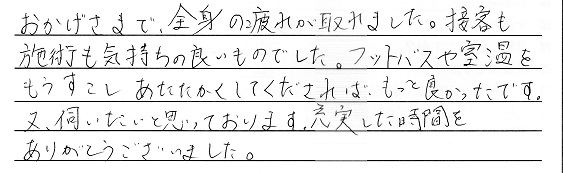 おかげさまで、全身の疲れが取れました。接客も
施術も気持ちの良いものでした。フットバスや室温を
もうすこし あたたかくしてくだされば、もっと良かったです。
又、伺いたいと思っております。充実した時間を
ありがとうございました。